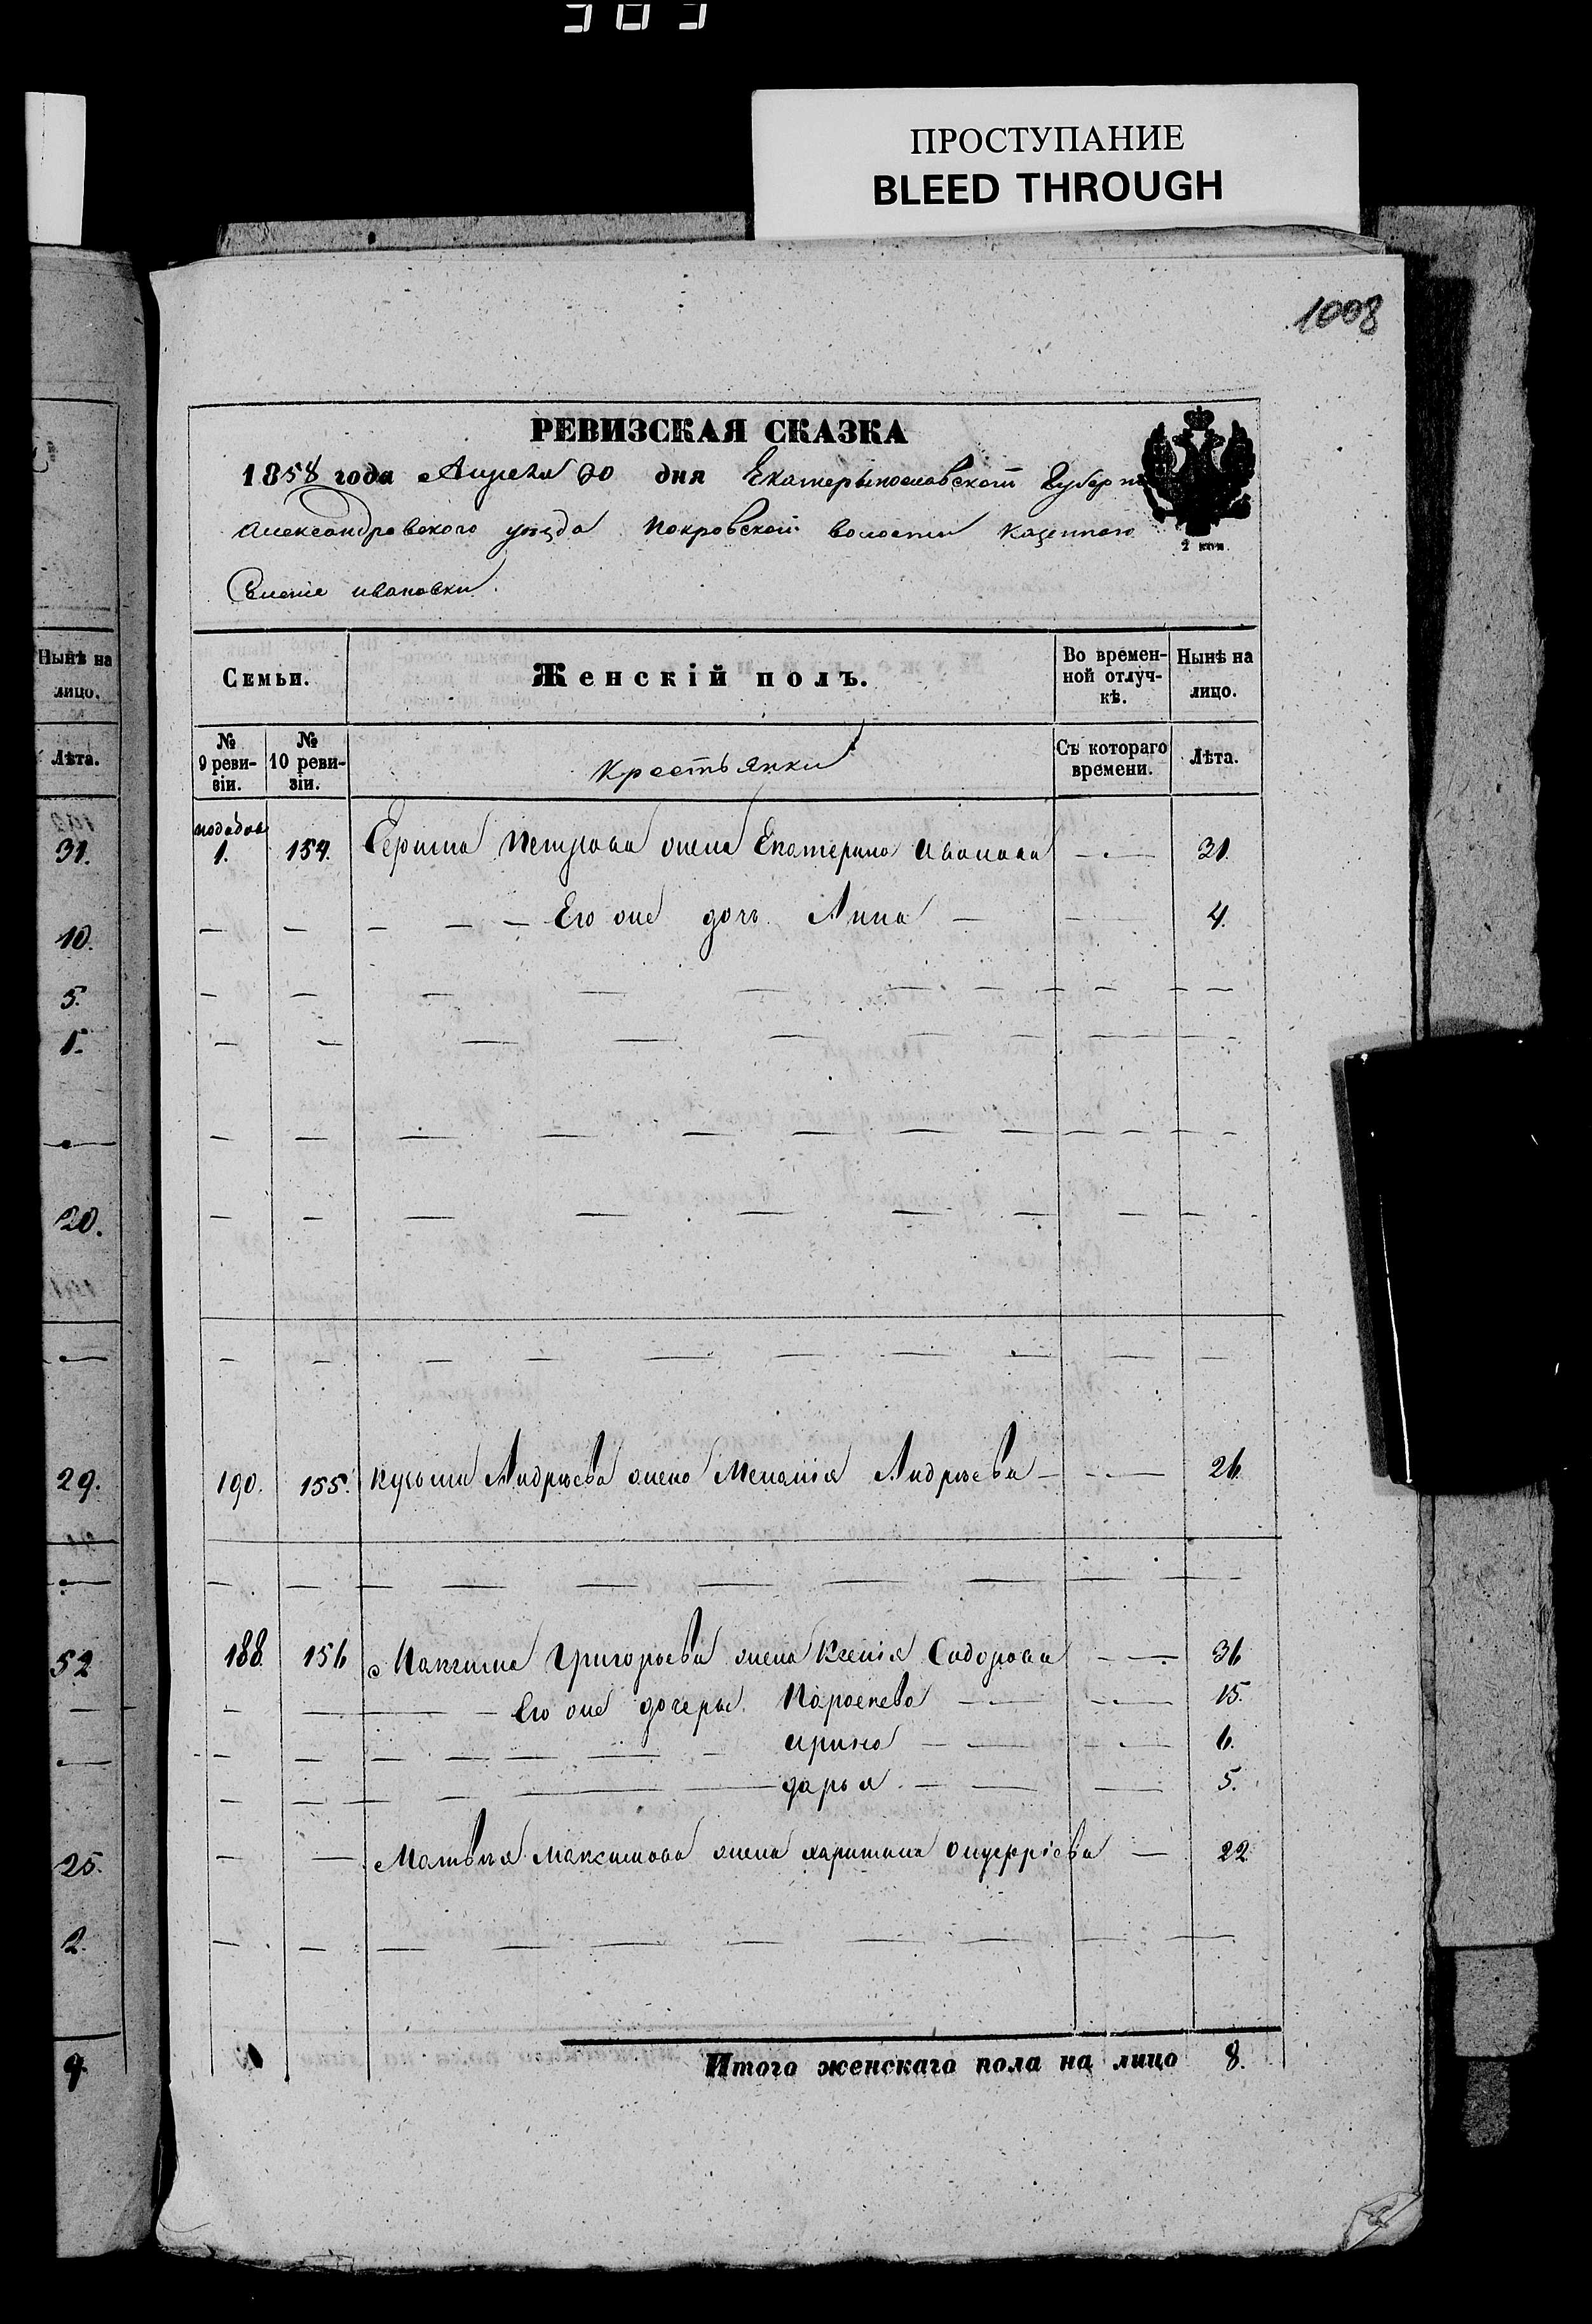 ПРОСТУПАНИЕ
BLEED THROUGH
1008
РЕВИЗСКАЯ СКАЗКА
1858 года Апреля 20 дня Екатеринославской Губерн
Александровского уезда Покровской волости казенного
2 коп.
Селенія ивановки.
Семьи. Женскій полъ. Во времен-ной отлуч-кѣ. Нынѣ на лицо.
№ 9 реви-зіи. № 10 реви-зіи. Крестьянки Съ котораго времени. Лѣта.
1. 154. Петрова жена Екатерина Иванова 31.
Его же дочь Анна 4.
190. 155. Кузьми Андрѣева жена Меланія Андрѣева 26
188. 156 Максима Григорьева жена Ксенія Сидорова 36
Его же дочеры Параскева 15.
ирина 6.
дарья 5.
Матвѣя Максимова жена харитина Онуфріева 22
Итого женскаго пола на лицо 8.
Нынѣ на лицо.
Лѣта.
31.
10.
5.
1.
20.
29.
52
25.
2.
9.